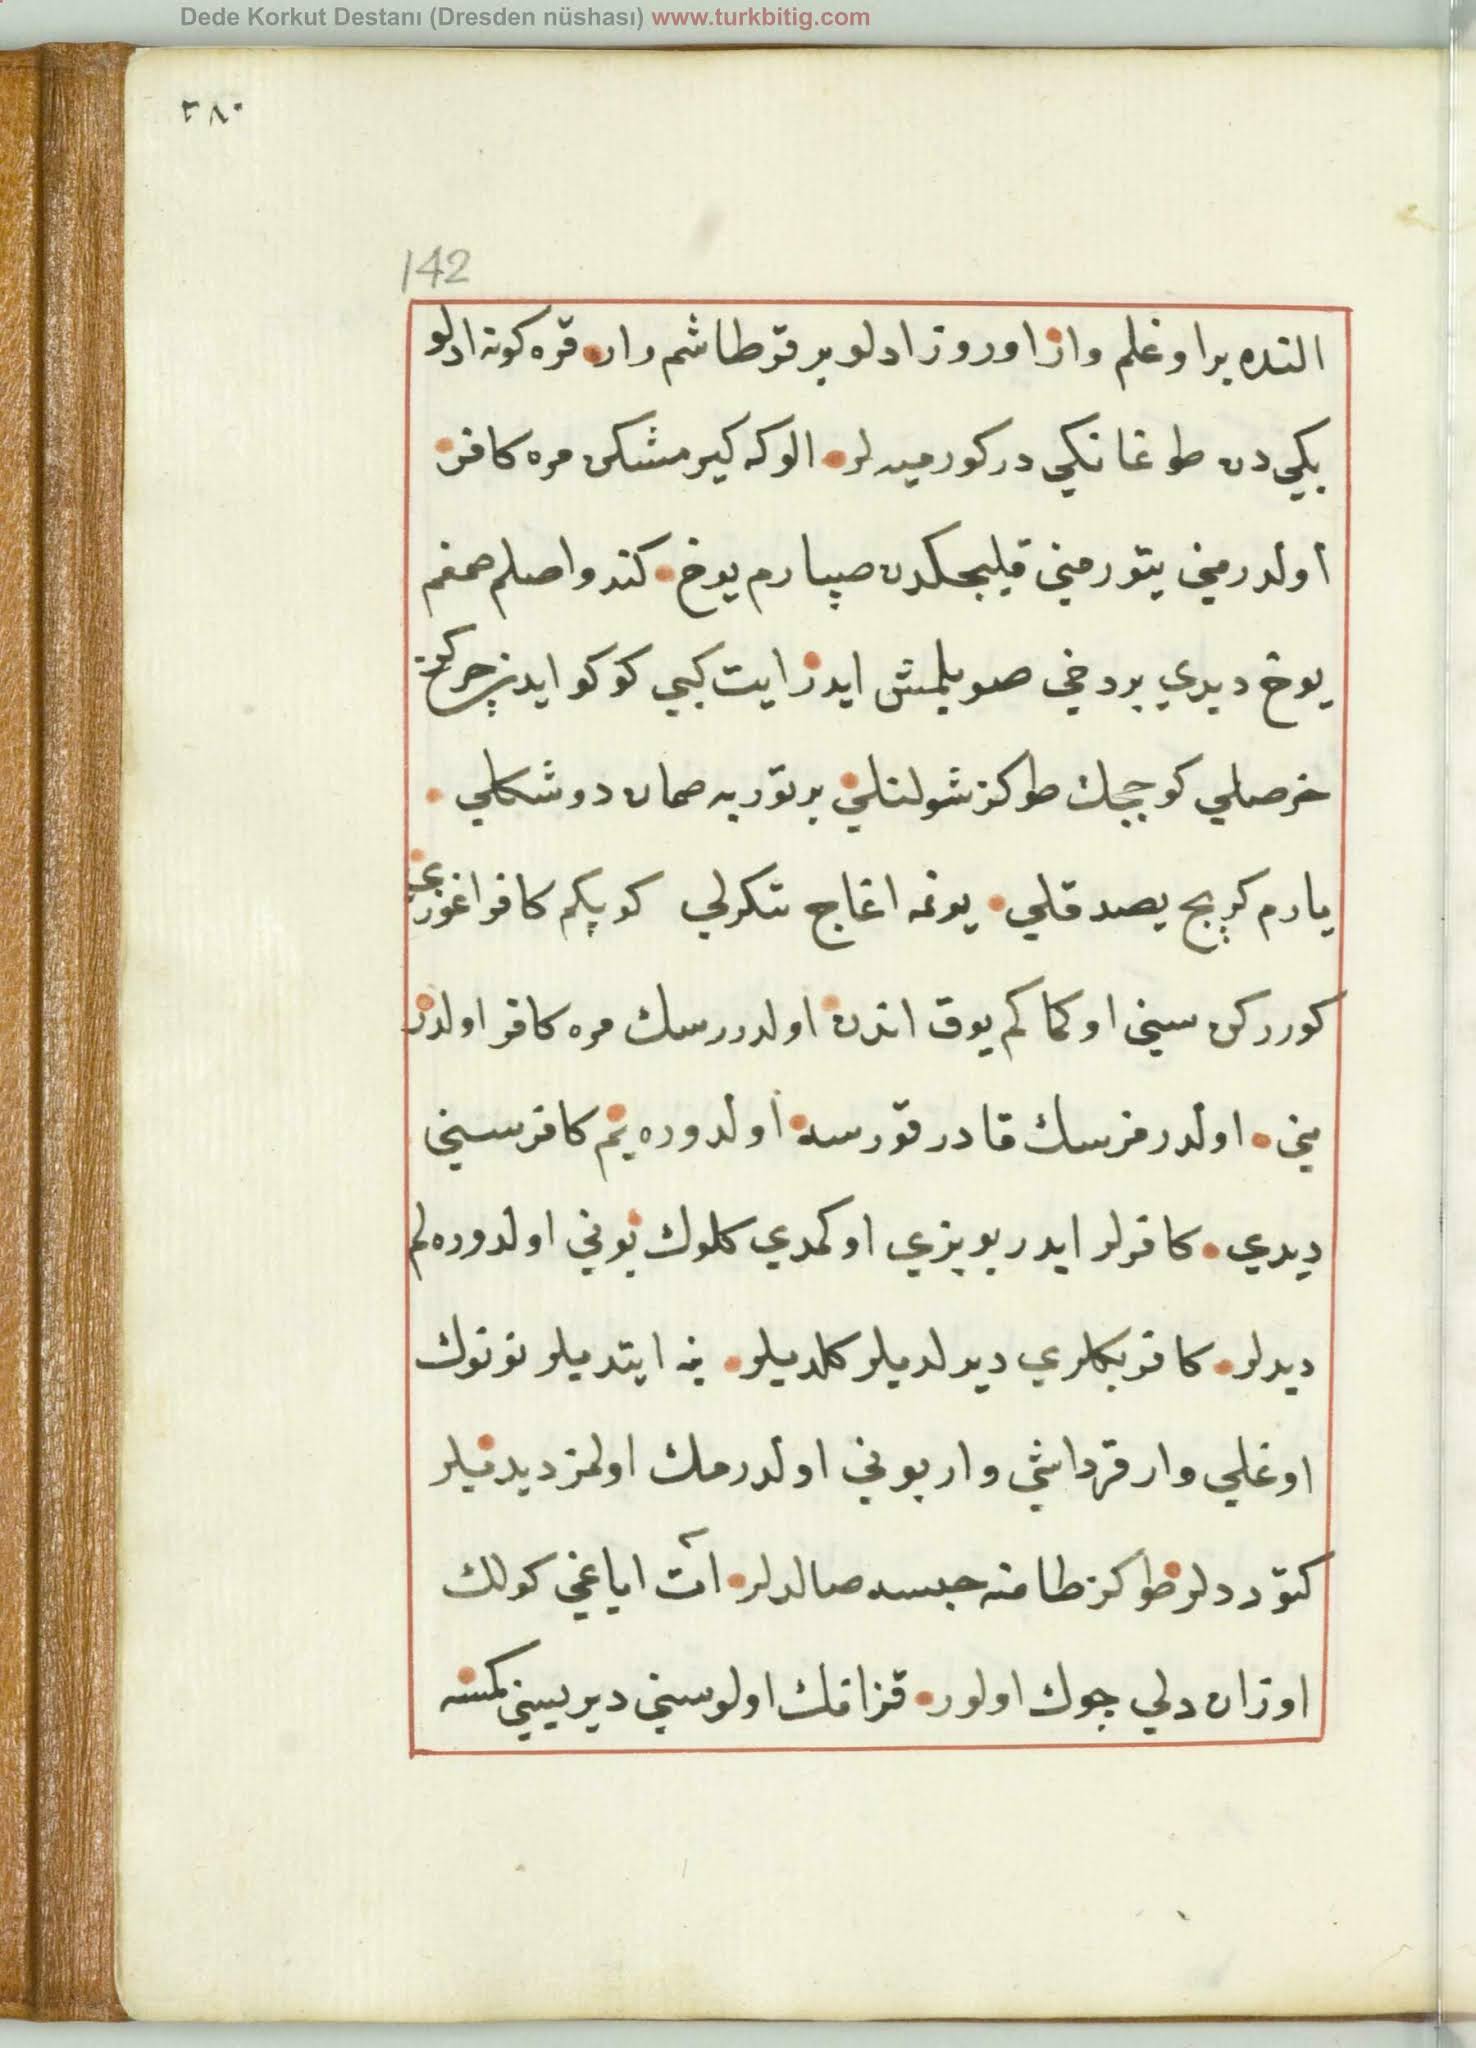 Dede Korkut Destanı (Dresden nüshası) www.turkbitig.com
٢٨٠
142
النده بر اوغلم وار اوروز ادلو بر قرطاشم وار قره كونه ادلو
بكي دن طوغانكي دركورميه لر الوكه كيرمشكن مره كافر
اولدرمني يتورمني قليجكدن صپارم يوخ كندو اصلم صمغم
يوخ ديدي بر دخي صويلمش ايدر ايت كبي كوكو ايدن چركز
خرصلي كوججك طوكز شولنلي بر توربه صمان دوشكلي
يارم كرپيج يصدقلي يونمه اغاج تنكرلي كوپكم كافر اغوزي
كورركن سيني اوكماكم يوق اندن اولدررسك مره كافر اولدر
مني اولدرمزسك قادر قورسه اولدوره يم كافر سيني
ديدي كافرلر ايدر بو بزي اوكمدي كلوك بوني اولدوره لم
ديدلر كافر بكلري ديرلديلر كلديلر ينه ايتديلر بونوك
اوغلي وار قرداشي وار بوني اولدرمك اولمز ديديلر
كتوردلر طوكز طامنه حبسه صالدلر آت اياغي كولك
اوزان دلي چوك اولور قزانك اولوسيني ديريسيني كمسنه